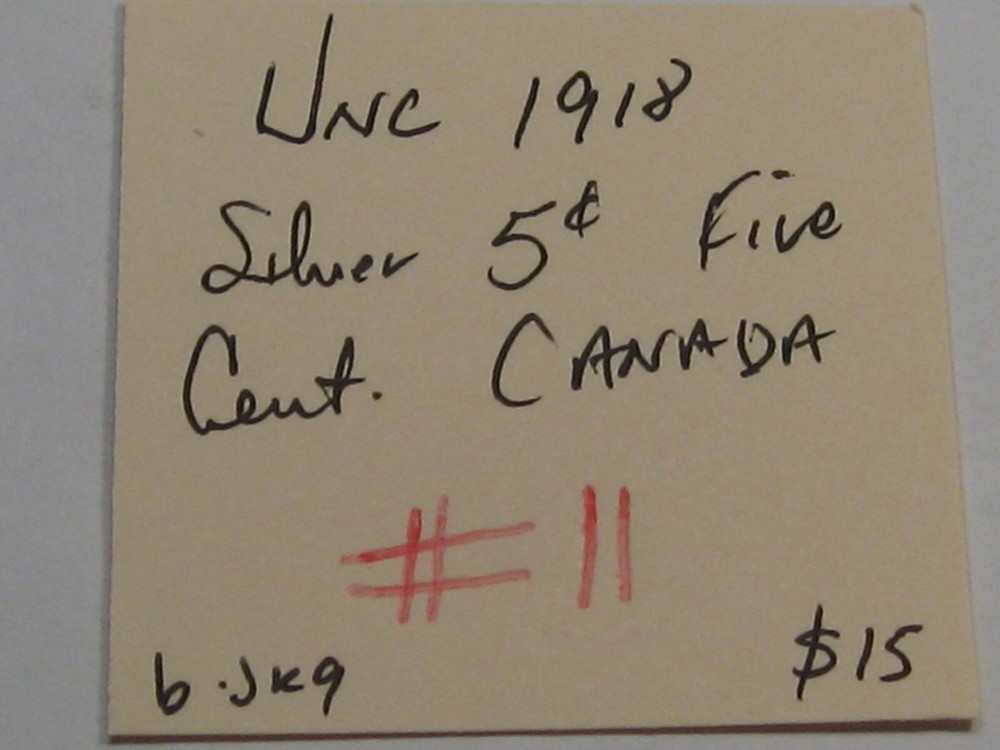 UNC 1918
Silver 5¢ Five
Cent. CANADA
# 11
b.jkg
$15